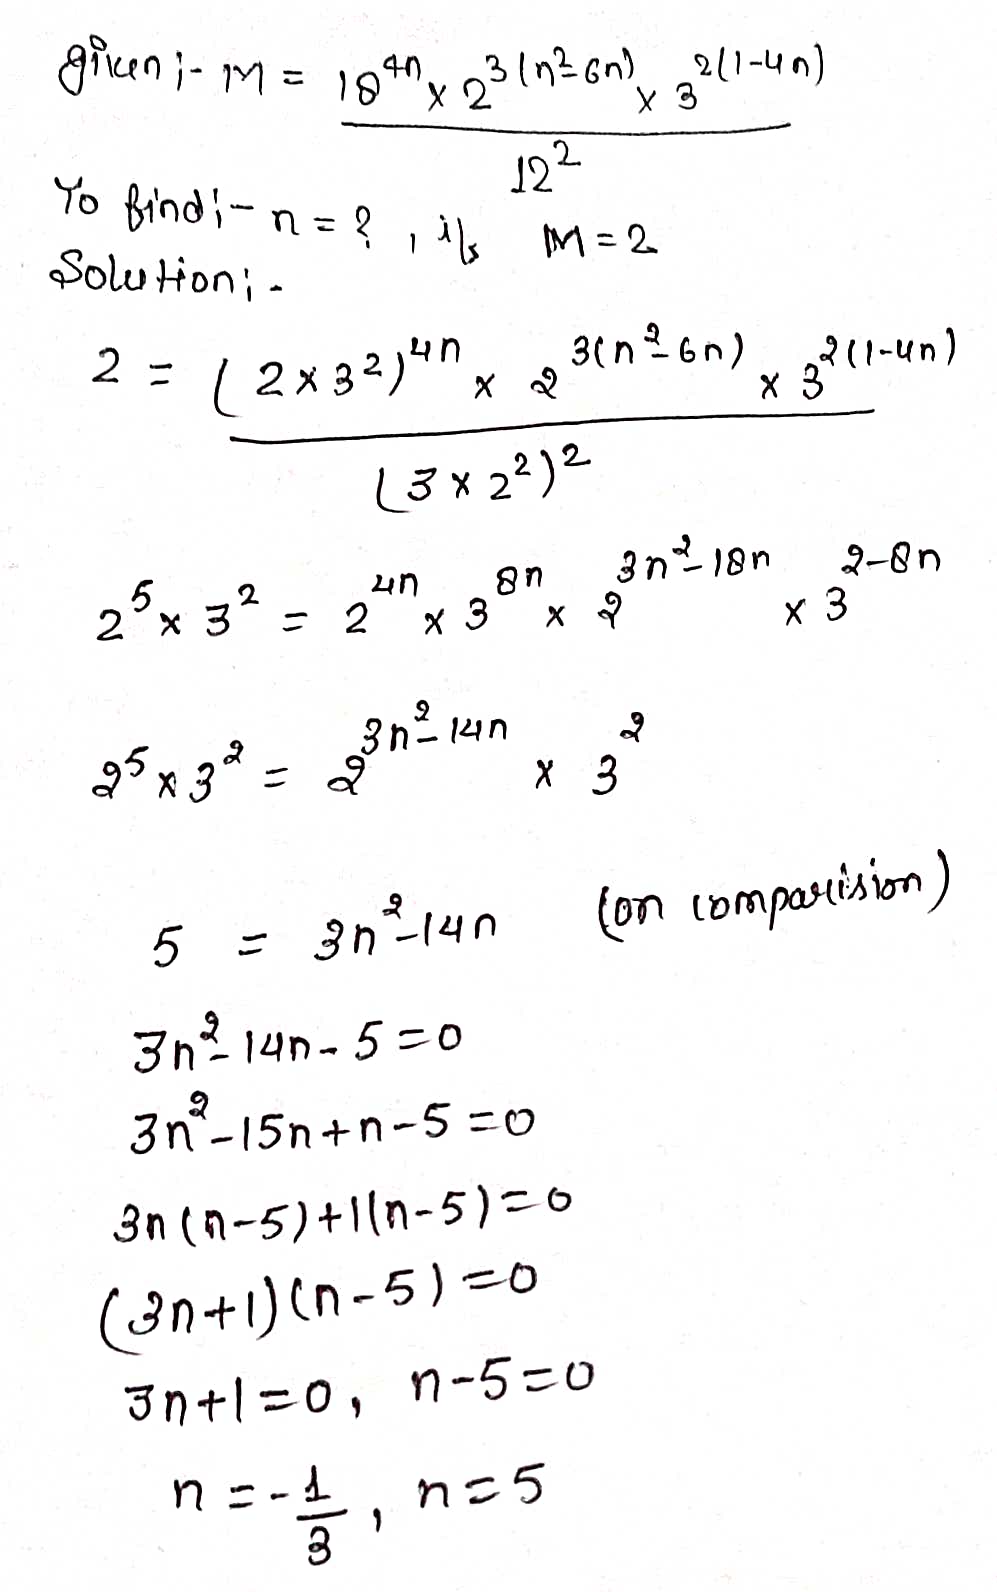 given;- M = 18^4n × 2^3(n^2-6n) × 3^2(1-4n)
12^2
To find;- n = ? , if M = 2
Solution;-
2 = (2 × 3^2)^4n × 2^3(n^2-6n) × 3^2(1-4n)
(3 × 2^2)^2
2^5 × 3^2 = 2^4n × 3^8n × 2^3n^2-18n × 3^2-8n
2^5 × 3^2 = 2^3n^2-14n × 3^2
5 = 3n^2-14n (on comparision)
3n^2-14n-5=0
3n^2-15n+n-5=0
3n(n-5)+1(n-5)=0
(3n+1)(n-5)=0
3n+1=0, n-5=0
n=-1/3, n=5